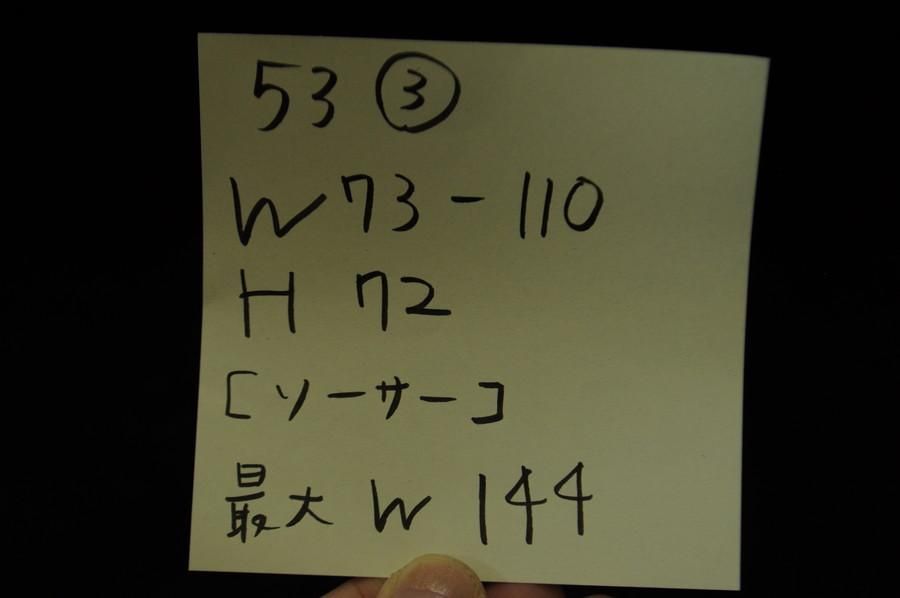 53 ③
W 73 - 110
H 72
[ソーサー]
最大 W 144